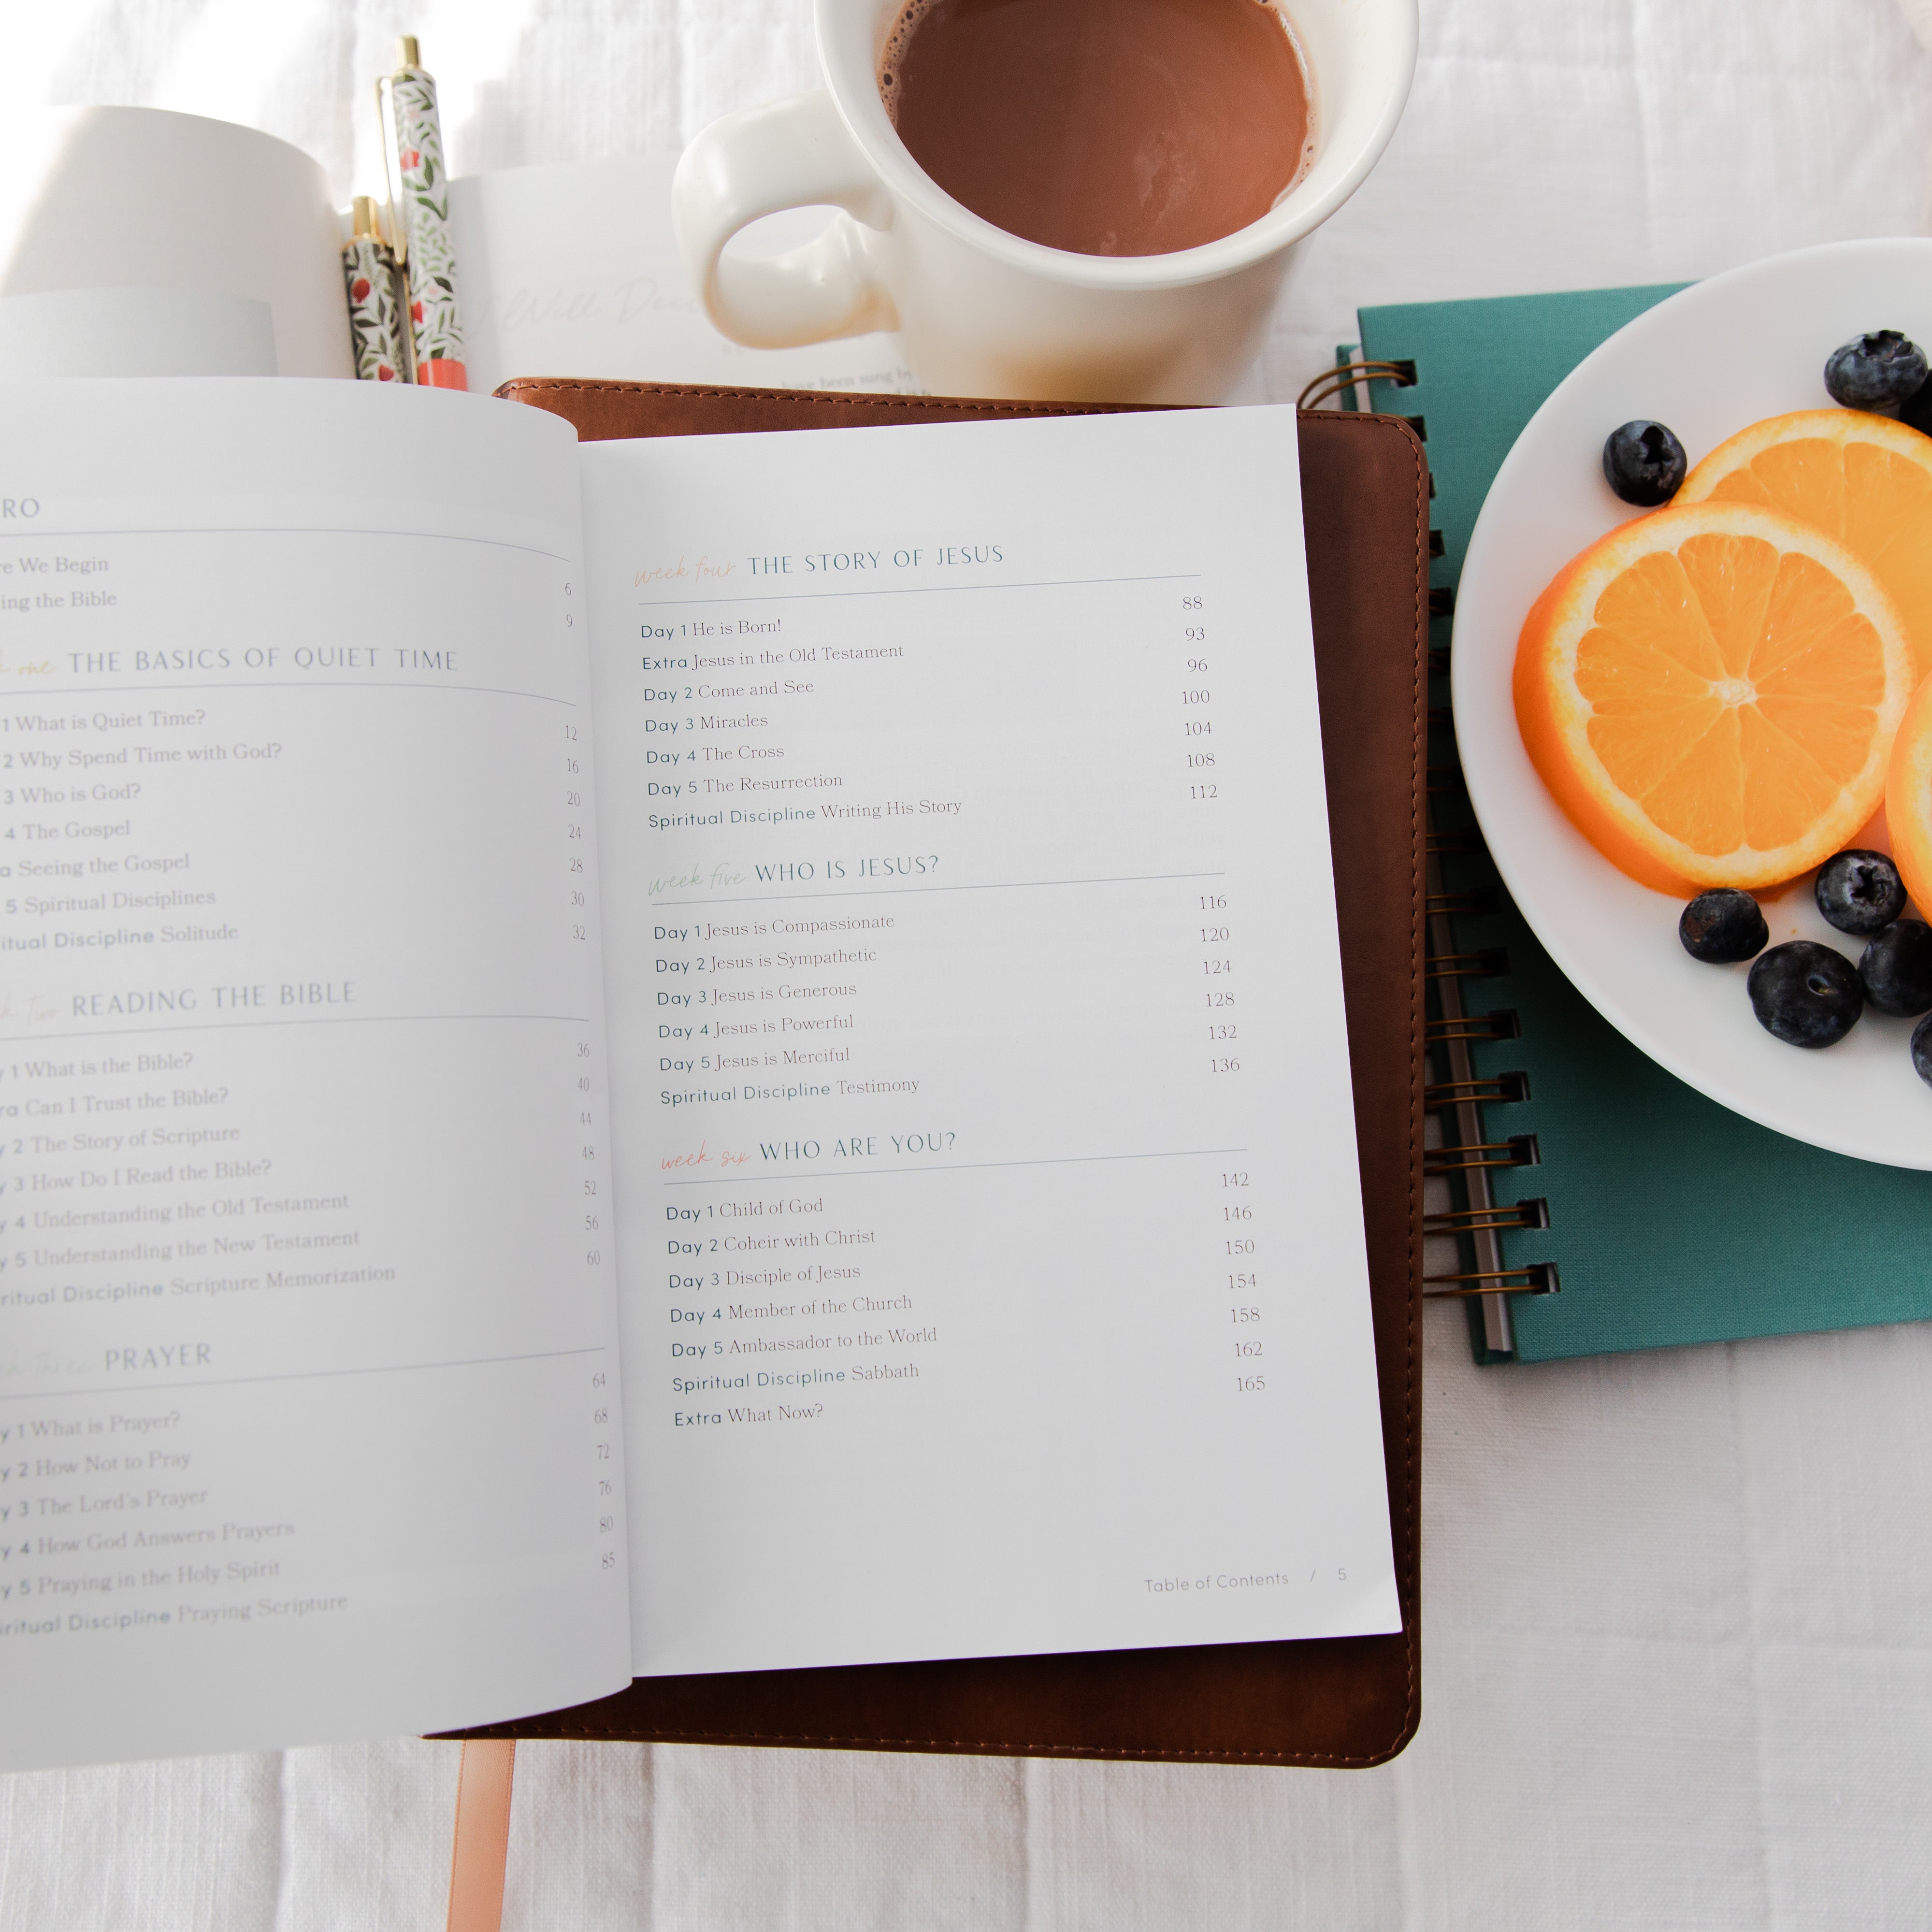 I Will
have been sung by
RO
We Begin
ing the Bible
6
9
one THE BASICS OF QUIET TIME
1 What is Quiet Time? 12
2 Why Spend Time with God? 16
3 Who is God? 20
4 The Gospel 24
a Seeing the Gospel 28
5 Spiritual Disciplines 30
itual Discipline Solitude 32
two READING THE BIBLE
y 1 What is the Bible? 36
ra Can I Trust the Bible? 40
y 2 The Story of Scripture 44
y 3 How Do I Read the Bible? 48
y 4 Understanding the Old Testament 52
y 5 Understanding the New Testament 56
ritual Discipline Scripture Memorization 60
three PRAYER
y 1 What is Prayer? 64
y 2 How Not to Pray 68
y 3 The Lord's Prayer 72
y 4 How God Answers Prayers 76
y 5 Praying in the Holy Spirit 80
iritual Discipline Praying Scripture 85
week four THE STORY OF JESUS
Day 1 He is Born! 88
Extra Jesus in the Old Testament 93
Day 2 Come and See 96
Day 3 Miracles 100
Day 4 The Cross 104
Day 5 The Resurrection 108
Spiritual Discipline Writing His Story 112
week five WHO IS JESUS?
Day 1 Jesus is Compassionate 116
Day 2 Jesus is Sympathetic 120
Day 3 Jesus is Generous 124
Day 4 Jesus is Powerful 128
Day 5 Jesus is Merciful 132
Spiritual Discipline Testimony 136
week six WHO ARE YOU?
Day 1 Child of God 142
Day 2 Coheir with Christ 146
Day 3 Disciple of Jesus 150
Day 4 Member of the Church 154
Day 5 Ambassador to the World 158
Spiritual Discipline Sabbath 162
Extra What Now? 165
Table of Contents / 5